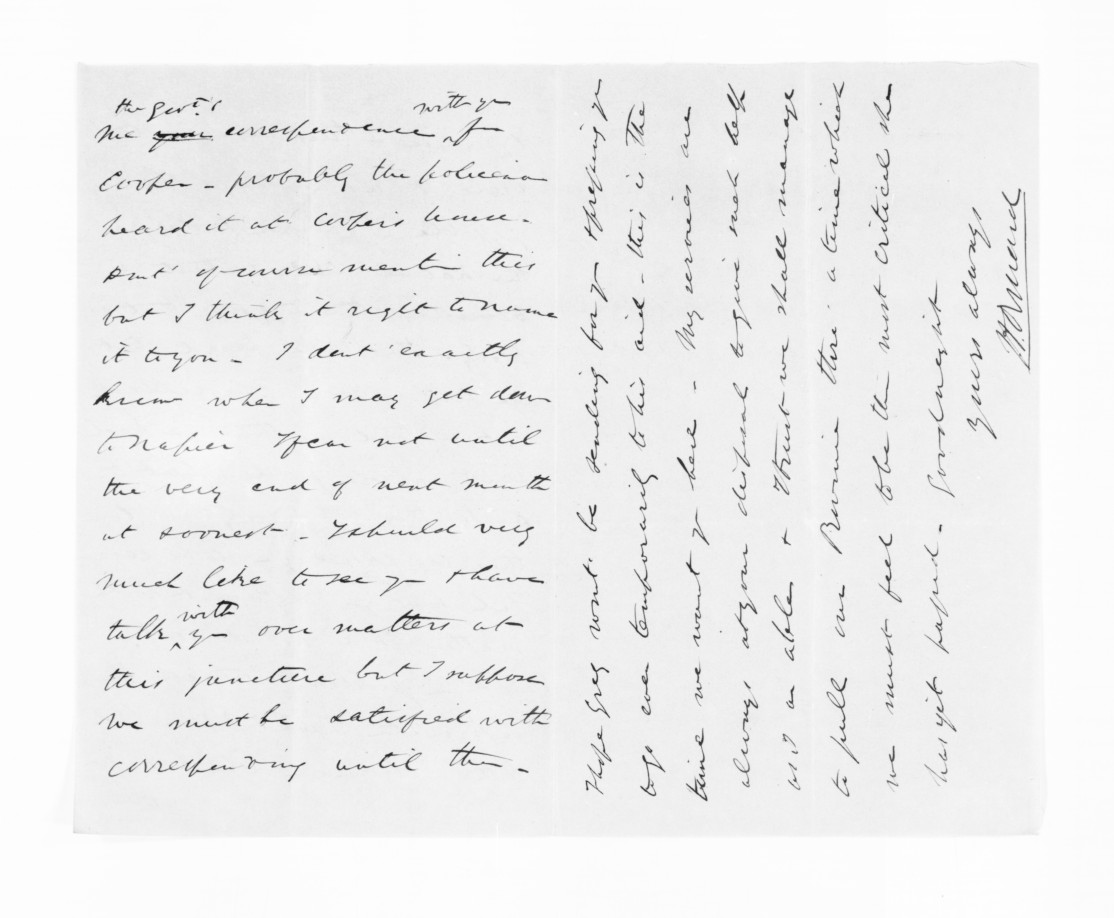 the Govt.'s with you
me your correspondence of
Cooper - probably the policeman
heard it at Cooper's house -
Dont' of course mention this
but I think it right to name
it to you - I dont' exactly
know when I may get down
to Napier I fear not until
the very end of next month
at soonest - I should very
much like to see you & have
talk with you over matters at
this juncture but I suppose
we must be satisfied with
corresponding until then -
I hope Grey wont be sending for you & pressing you
to go even temporarily to his aid - this is the
time we want you here - My services are
always at your disposal to give such help
as I am able & I trust we shall manage
to pull our through there: a time which
we must feel to be the most critical she
has yet passed - Goodnight
Yours always